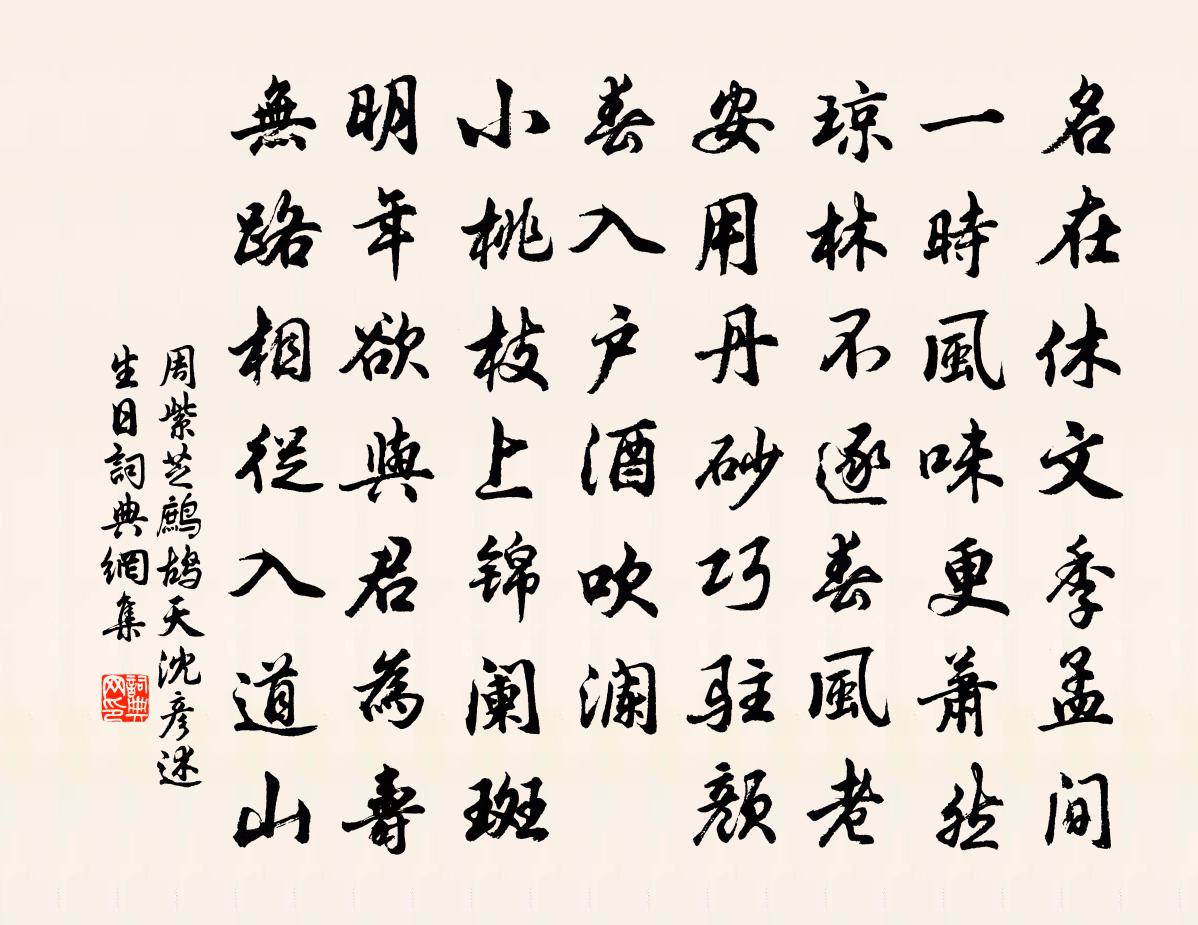 名在休文季孟间
一時風味更萧然
琼林不逐春風老
安用丹砂巧驻颜
春入户酒吹澜
小桃枝上锦阑斑
明年欲與君為壽
無路相從入道山
周紫芝鹧鸪天沈彦述
生日詞典網集
詞典网印